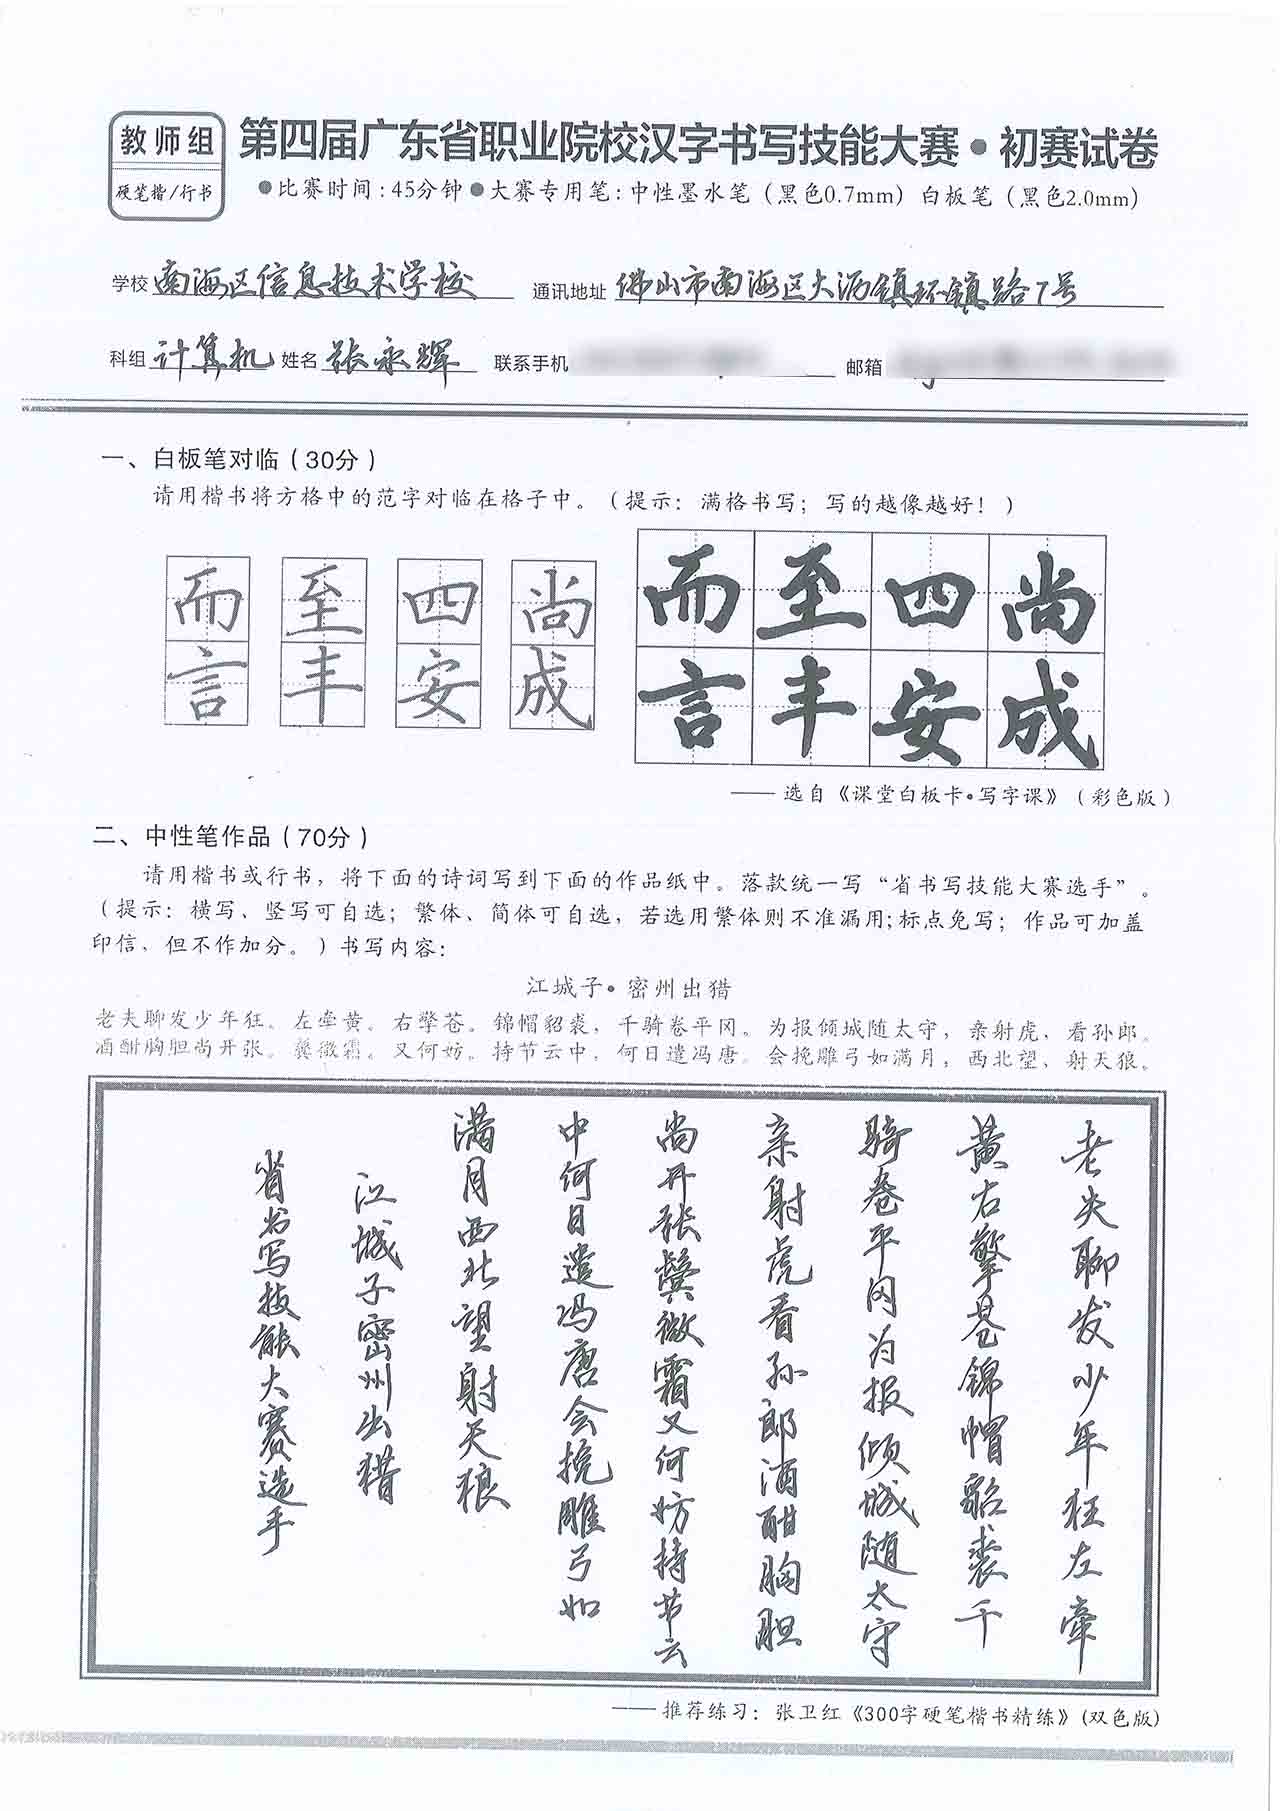 教师组
硬笔楷/行书
第四届广东省职业院校汉字书写技能大赛•初赛试卷
●比赛时间:45分钟●大赛专用笔:中性墨水笔（黑色0.7mm）白板笔（黑色2.0mm）
学校 南海区信息技术学校 通讯地址 佛山市南海区大沥镇环镇路7号
科组 计算机 姓名 张永辉 联系手机 邮箱
一、白板笔对临（30分）
请用楷书将方格中的范字对临在格子中。（提示：满格书写；写的越像越好！）
而 至 四 尚 而 至 四 尚
言 丰 安 成 言 丰 安 成
——选自《课堂白板卡•写字课》（彩色版）
二、中性笔作品（70分）
请用楷书或行书，将下面的诗词写到下面的作品纸中。落款统一写“省书写技能大赛选手”。
（提示：横写、竖写可自选；繁体、简体可自选，若选用繁体则不准漏用;标点免写；作品可加盖
印信、但不作加分。）书写内容：
江城子•密州出猎
老夫聊发少年狂。左牵黄。右擎苍。锦帽貂裘，千骑卷平冈。为报倾城随太守，亲射虎，看孙郎。
酒酣胸胆尚开张。鬓微霜。又何妨。持节云中，何日遣冯唐。会挽雕弓如满月，西北望，射天狼。
老夫聊发少年狂左牵
黄右擎苍锦帽貂裘千
骑卷平冈为报倾城随太守
亲射虎看孙郎酒酣胸胆
尚开张鬓微霜又何妨持节云
中何日遣冯唐会挽雕弓如
满月西北望射天狼
江城子密州出猎
省书写技能大赛选手
——推荐练习：张卫红《300字硬笔楷书精练》(双色版)